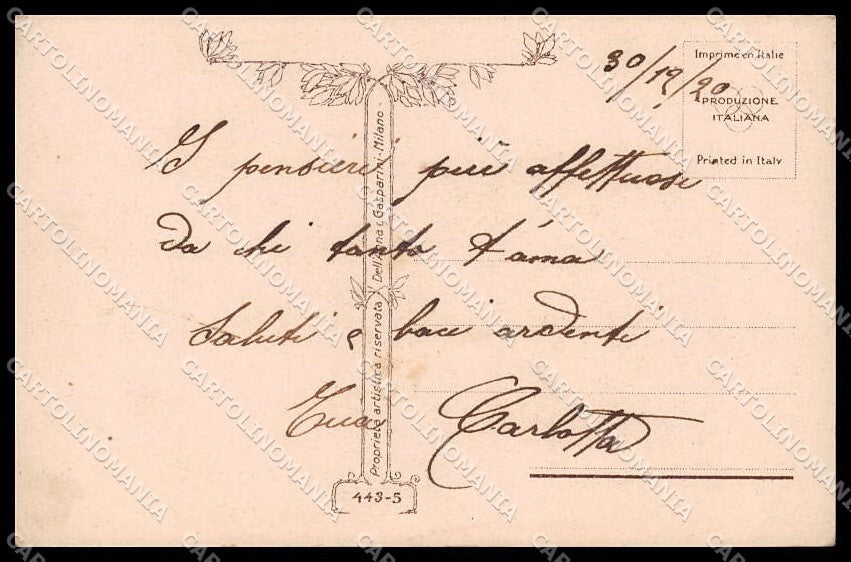 30/12/20
Imprimé en Italie
PRODUZIONE
ITALIANA
Printed in Italy
I pensieri più affettuosi
da chi tanto t'ama
Saluti e baci ardenti
Tua Carlotta
Proprietà artistica riservata Dell'Anna e Gasparini - Milano -
443-5
CARTOLINOMANIA